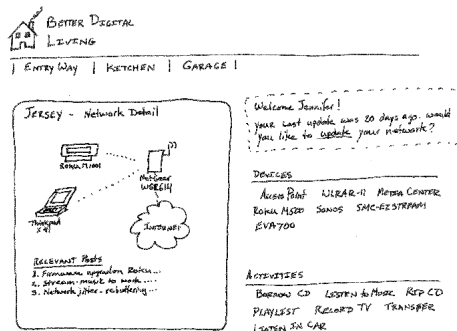 BETTER DIGITAL
LIVING
| ENTRY WAY | KITCHEN | GARAGE |
JERSEY - Network Detail
Roku M1001
NetGear
Thinkpad
INTERNET
RELEVANT Posts
1. Firmware upgrade on Roku...
2. Stream music to work....
3. Network jitter - rebuffering...
Welcome Jennifer!
your last update was 20 days ago. would
you like to update your network?
DEVICES
Access Point MEDIA CENTER
Roku M500 SONOS SMC-EZSTREAM
EVA700
ACTIVITIES
BORROW CD LISTEN to MUSIC RIP CD
PLAYLIST RECORD TV TRANSFER
LISTEN IN CAR